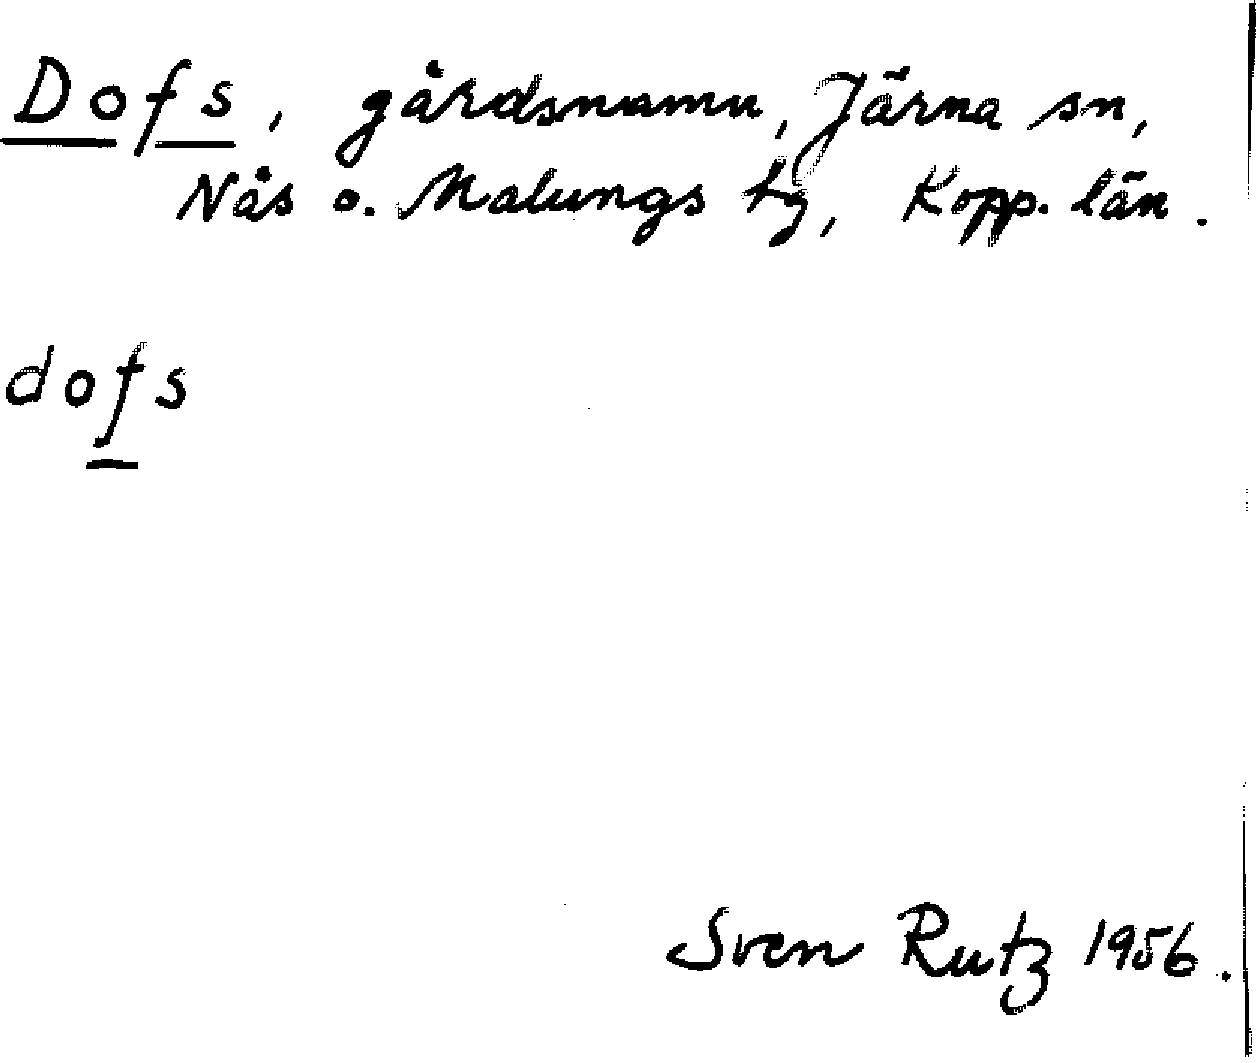 Dofs, gårdsnamn, Järna sn,
Nås o. Malungs tg, Kopp. län.
dofs
Sven Rutz 1956.